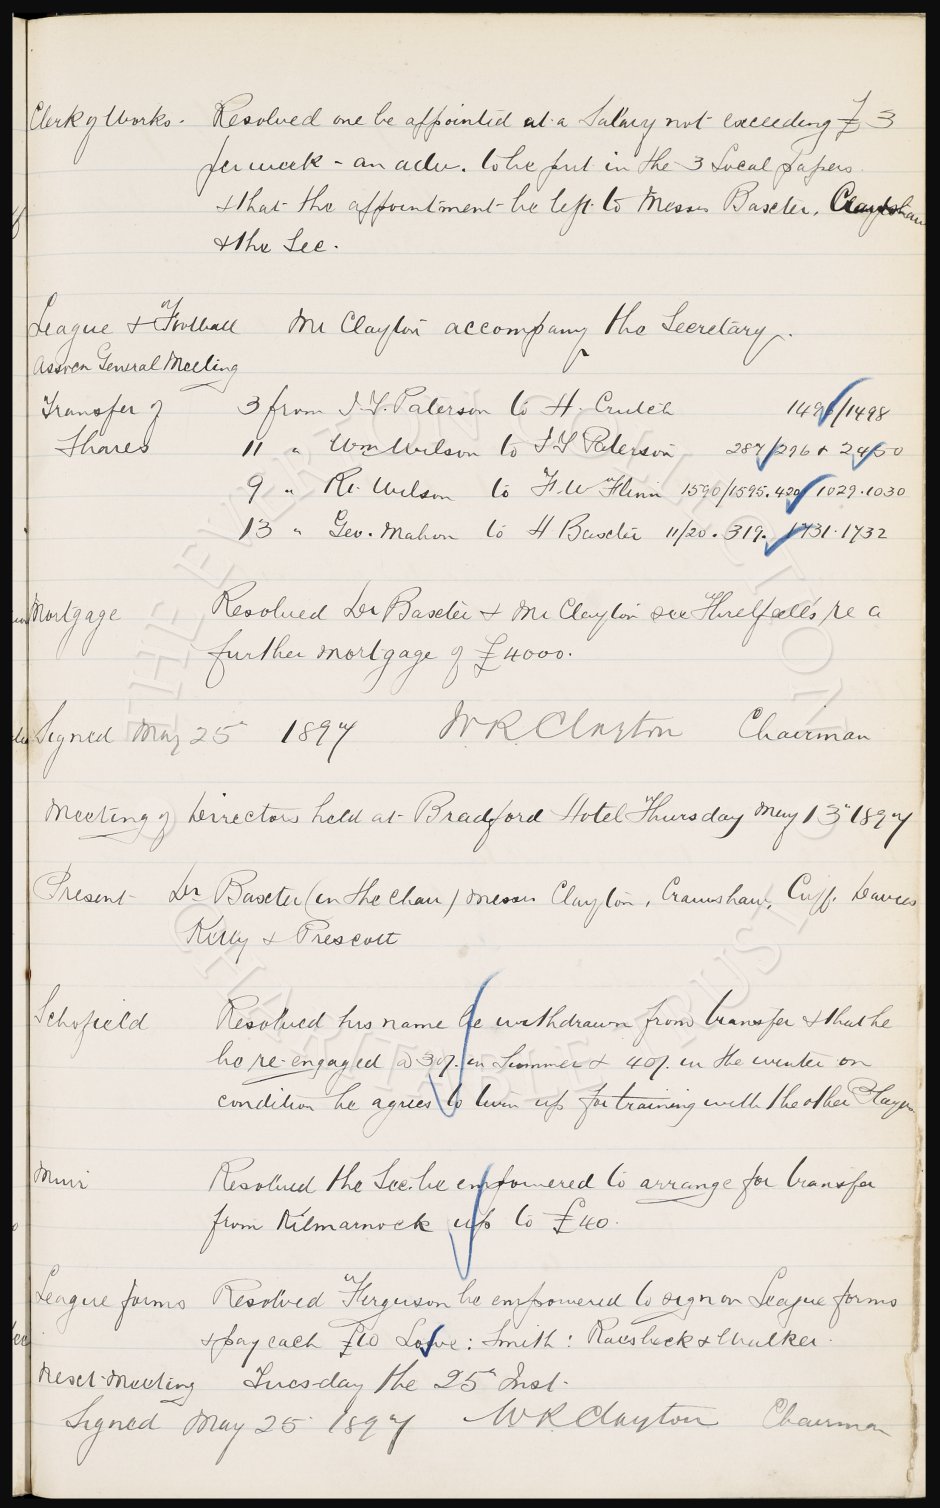 Clerk of Works. Resolved one be appointed at a Salary not exceeding £3
per week - an adv. to be put in the 3 Local Papers.
& that the appointment be left to Messrs Baxter, Crawshaw
& the Sec.
League & Football Mr Clayton accompany the Secretary.
Assocn General Meeting
Transfer of 3 from J.Y. Paterson to H. Crutch 1496/1498
Shares 11 " Wm Wilson to J Y Paterson 287/296 & 2450
9 " Rt. Wilson to F.W Flinn 1590/1595. 420 1029.1030
13 " Geo. Mahon to H Baxter 11/20. 319. 1731.1732
Mortgage Resolved Dr Baxter & Mr Clayton see Threlfalls re a
further mortgage of £4000.
Signed May 25th 1897 W R Clayton Chairman
Meeting of Directors held at Bradford Hotel Thursday May 13th 1897
Present Dr Baxter (in the chair) Messrs Clayton, Crawshaw, Cuff, Davies
Kelly & Prescott
Schofield Resolved his name be withdrawn from transfer & that he
be re-engaged @ 30/- in Summer & 40/- in the winter on
condition he agrees to turn up for training with the other Players
Muir Resolved the Sec. be empowered to arrange for transfer
from Kilmarnock up to £40.
League forms Resolved Ferguson be empowered to sign on League forms
& pay each £10 Lowe: Smith: & Walker.
Next Meeting Tuesday the 25th Inst.
Signed May 25 1897 W R Clayton Chairman
THE EVERTON COLLECTION
CHARITABLE TRUST